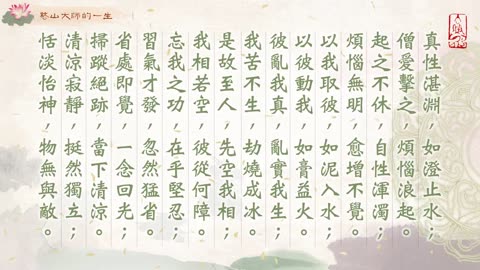 憨山大師的一生
真性湛淵，如澄止水；
僧愛擊之，煩惱浪起。
起之不休，自性渾濁；
煩惱無明，愈增不覺。
以我取彼，如泥入水；
以彼動我，如膏益火。
彼亂我真，亂實我生；
我苦不生，劫燒成冰。
是故至人，先空我相；
我相若空，彼從何障。
忘我之功，在乎堅忍；
習氣才發，忽然猛省。
省處即覺，一念回光；
掃蹤絕跡，當下清涼。
清涼寂靜，挺然獨立；
恬淡怡神，物無與敵。